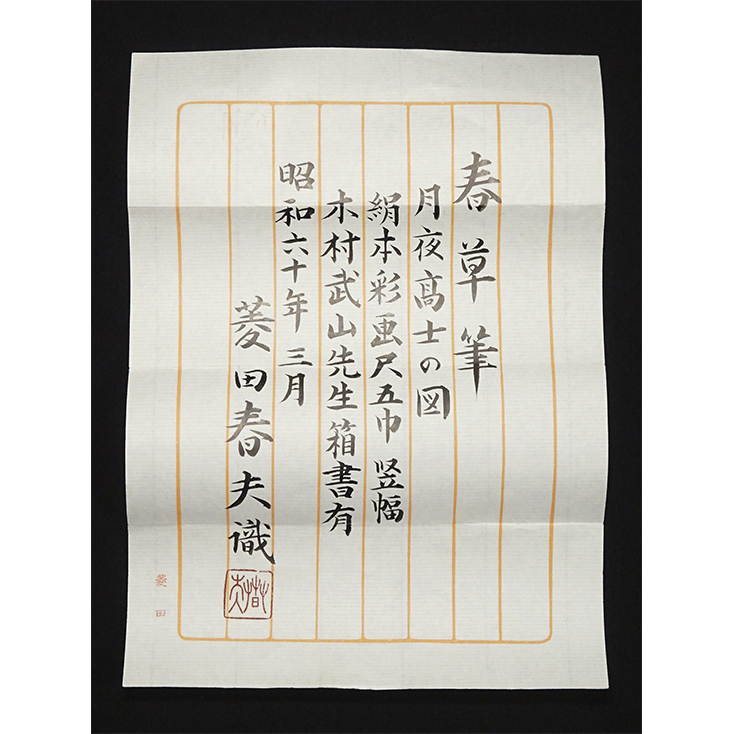 春草筆
月夜髙士の図
絹本彩画尺五巾 竪幅
木村武山先生箱書有
昭和六十年三月
菱田春夫識
菱田